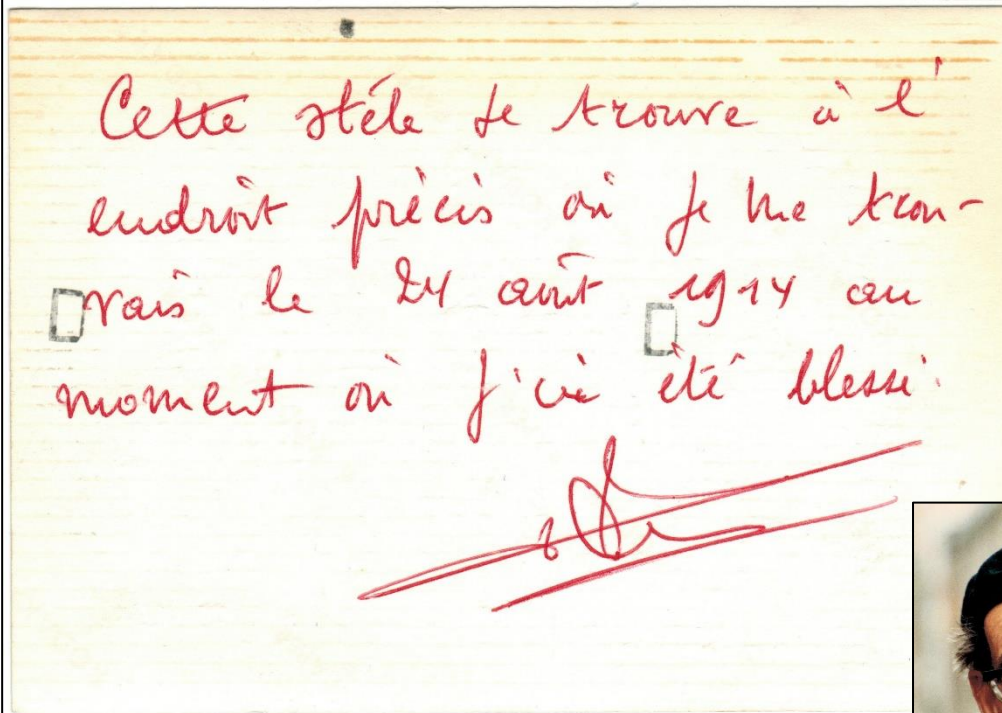 Cette stéle se trouve à l'
endroit précis où je me trou-
vais le 24 août 1914 au
moment où j'ai été blessé.